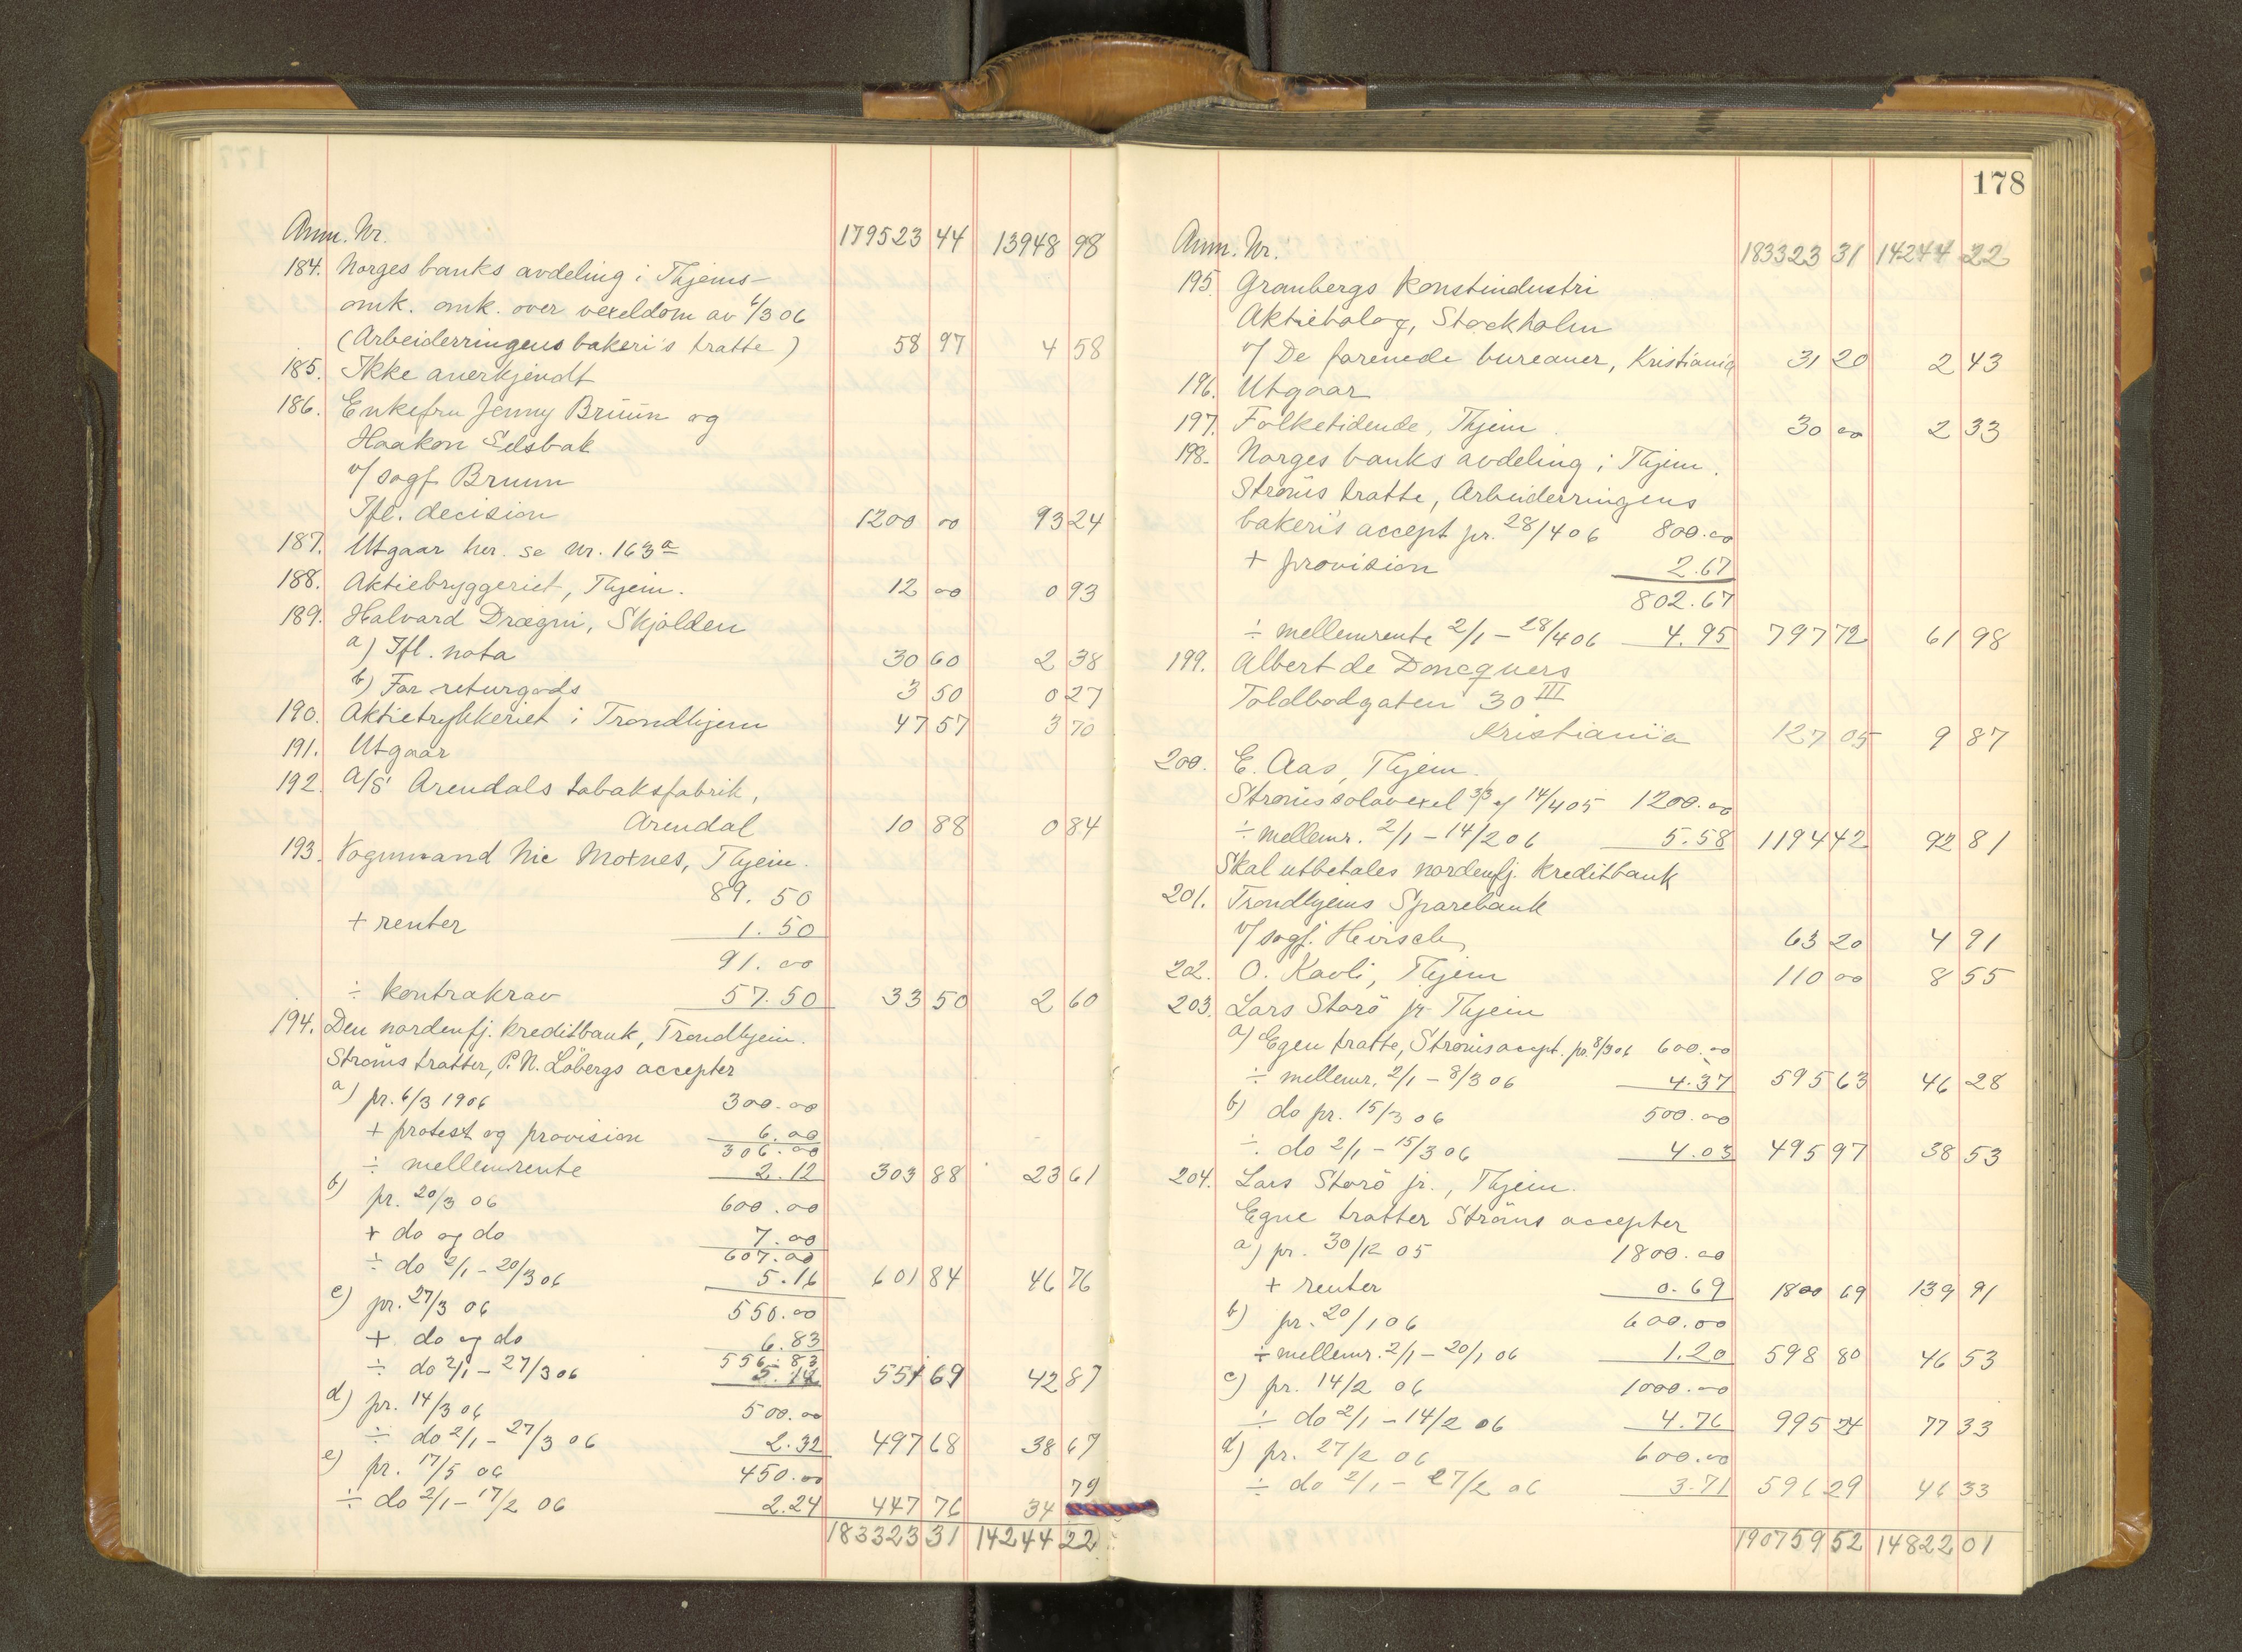 Anm. Nr. 179523 44 13948 98
184. Norges banks avdeling i Thjems-
omk. omk. over vexeldom av 6/3 06
(Arbeiderringens bakeri's tratte) 58 97 4 58
185. Ikke anerkjendt
186. Enkefru Jenny Bruun og
Haakon Selsbak
v/ sagf. Bruun
Ifl. decision 1200 00 93 24
187. Utgaar her. se Nr. 163a
188. Aktiebryggeriet, Thjem. 12 00 0 93
189. Halvard Drægni, Skjolden
a) Ifl. nota 30 60 2 38
b) For returgods 3 50 0 27
190. Aktietrykkeriet i Trondhjem 47 57 3 70
191. Utgaar
192. A/S Arendals tobaksfabrik,
Arendal 10 88 0 84
193. Vognmand Nic Moxnes, Thjem.
89.50
+ renter 1.50
91.00
÷ kontrakrav 57.50 33 50 2 60
194. Den nordenfj. kreditbank, Trondhjem.
Ströms tratter, P. N. Löbergs accepter
a) pr. 6/3 1906 300.00
+ protest og provision 6.00
306.00
÷ mellemrente 2.12 303 88 23 61
b) pr. 20/3 06 600.00
+ do og do 7.00
607.00
÷ do 2/1 - 20/3 06 5.16 601 84 46 76
c) pr. 27/3 06 550.00
+ do og do 6.83
556.83
÷ do 2/1 - 27/3 06 5.14 551 69 42 87
d) pr. 14/3 06 500.00
÷ do 2/1 - 27/3 06 2.32 497 68 38 67
e) pr. 17/5 06 450.00
÷ do 2/1 - 17/2 06 2.24 447 76 34 79
183323 31 14244 22
178
Anm. Nr. 183323 31 14244 22
195. Granbergs Konstindustri
Aktiebolag, Stockholm
v/ De forenede bureauer, Kristiania 31 20 2 43
196. Utgaar
197. Folketidende, Thjem. 30 00 2 33
198. Norges banks avdeling i Thjem.
Ströms tratte, Arbeiderringens
bakeri's accept pr. 28/4 06 800.00
+ provision 2.67
802.67
÷ mellemrente 2/1 - 28/4 06 4.95 797 72 61 98
199. Albert de Doncquers
Toldbodgaten 30 III
Kristiania 127 05 9 87
200. E. Aas, Thjem.
Ströms solavexel 3/3 14/4 05 1200.00
÷ mellemr. 2/1 - 14/2 06 5.58 1194 42 92 81
Skal utbetales nordenfj. kreditbank
201. Trondhjems Sparebank
v/ sagf. Hirsch 63 20 4 91
202. O. Kavli, Thjem 110 00 8 55
203. Lars Storö jr. Thjem
a) Egen tratte, Ströms accept. pr. 8/3 06 600.00
÷ mellemr. 2/1 - 8/3 06 4.37 595 63 46 28
b) do pr. 15/3 06 500.00
÷ do 2/1 - 15/3 06 4.03 495 97 38 53
204. Lars Storö jr., Thjem.
Egne tratter Ströms accepter
a) pr. 30/12 05 1800.00
+ renter 0.69 1800 69 139 91
b) pr. 20/1 06 600.00
÷ mellemr. 2/1 - 20/1 06 1.20 598 80 46 53
c) pr. 14/2 06 1000.00
÷ do 2/1 - 14/2 06 4.76 995 24 77 33
d) pr. 27/2 06 600.00
÷ do 2/1 - 27/2 06 3.71 596 29 46 33
190759 52 14822 01